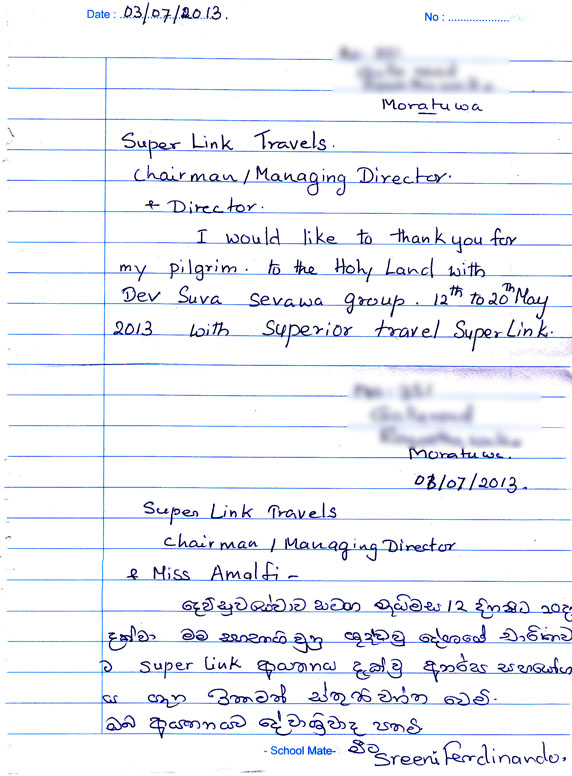 Date : 03/07/2013. No : ....................
Moratuwa
Super Link Travels.
Chairman / Managing Director.
& Director.
I would like to thank you for
my pilgrim. to the Holy Land with
Dev Suva sevawa group. 12th to 20th May
2013 with Superior travel SuperLink.
Moratuwa.
03/07/2013.
Super Link Travels
Chairman / Managing Director
& Miss Amalfi -
දෙව් සුව සේවාව සමඟ මැයි මස 12 දින සිට 20දා
දක්වා මම සහභාගී වුනු ශුද්ධවූ දේශයේ චාරිකාව
ට super Link ආයතනය දැක්වූ අතරප සහයෝග
ය ගැන ඉතාමත් ස්තුති වන්ත වෙමි.
ඔබ ආයතනයට දේවාශිර්වාද පතමි
මීට Sreeni Ferdinando.
- School Mate-